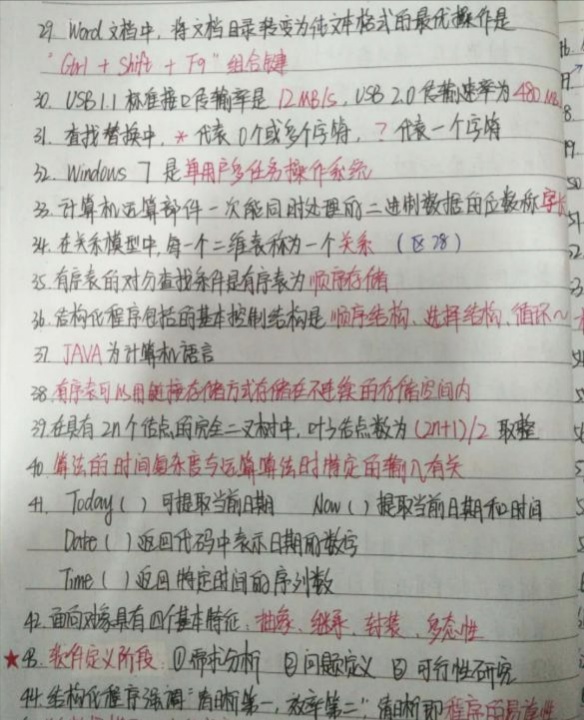 29. Word文档中，将文档目录转变为纯文本格式的最优操作是
"Ctrl + Shift + F9"组合键
30. USB1.1标准接口传输率是12MB/s，USB 2.0传输速率为480 MB/
31. 查找替换中，*代表0个或多个字符，?代表一个字符
32. Windows 7 是单用户多任务操作系统
33. 计算机运算部件一次能同时处理的二进制数据的位数称字长
34. 在关系模型中，每一个二维表称为一个关系 （区28）
35. 有序表的对分查找条件是有序表为顺序存储
36. 结构化程序包括的基本控制结构是顺序结构、选择结构、循环~
37. JAVA为计算机语言
38. 有序表可以用链接存储方式存储在不连续的存储空间内
39. 在具有2n个结点的完全二叉树中，叶子结点数为(2n+1)/2 取整
40. 算法的时间复杂度与运算算法时特定的输入有关
41. Today（ ）可提取当前日期 Now（ ）提取当前日期和时间
Date（ ）返回代码中表示日期的数字
Time（ ）返回特定时间的序列数
42. 面向对象具有四个基本特征：抽象、继承、封装、多态性
★43. 软件定义阶段：①需求分析 ②问题定义 ③可行性研究
44. 结构化程序强调"清晰第一，效率第二"，清晰即程序的易读性